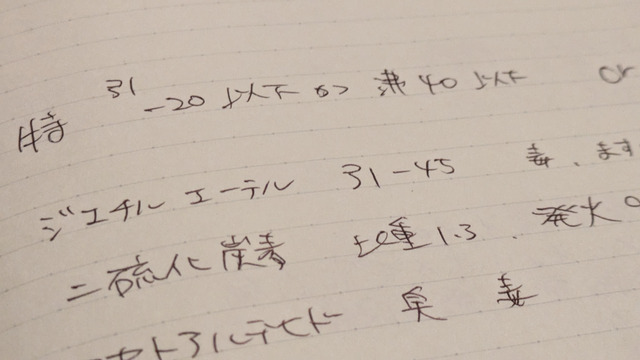 特 31 -20以下かつ 沸40以下 or
ジエチルエーテル 31-45 毒、ます
二硫化炭素 比重1.3、発火9
セトアルデヒド 臭 毒